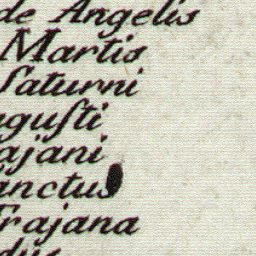 de Angelis
Martis
Saturni
guſti
ajani
anctus
Trajana